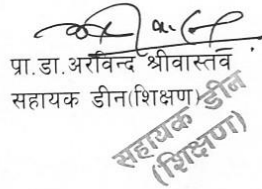 प्रा.डा.अरविन्द श्रीवास्तव
सहायक डीन(शिक्षण)
सहायक डीन
(शिक्षण)